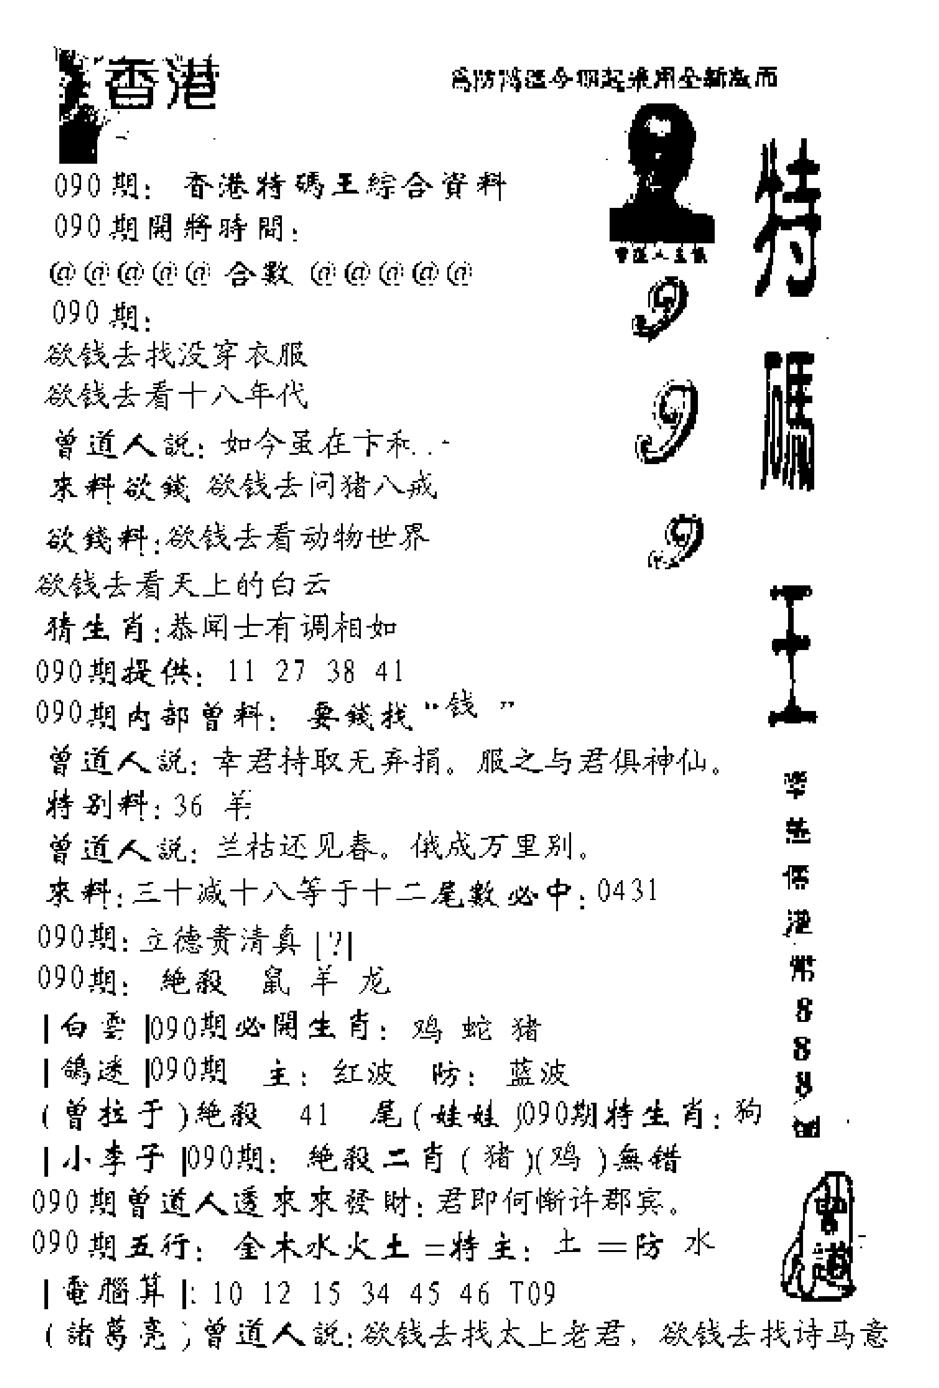 香港
為防偽從今期起采用全新版面
090期：香港特碼王綜合資料
090期開將時間：
@@@@@合數@@@@@
090期：
欲钱去找没穿衣服
欲钱去看十八年代
曾道人説：如今虽在卞和..-
來料欲錢 欲钱去问猪八戒
欲錢料：欲钱去看动物世界
欲钱去看天上的白云
猜生肖：恭闻士有调相如
090期提供：11 27 38 41
090期内部曾料：要錢找“钱”
曾道人説：幸君持取无弃捐。服之与君俱神仙。
特别料：36 羊
曾道人説：兰枯还见春。俄成万里别。
來料：三十减十八等于十二尾數必中：0431
090期：立德贵清真[?]
090期：絶殺 鼠 羊 龙
|白雲|090期必開生肖：鸡 蛇 猪
|鴿迷|090期 主：红波 防：蓝波
(曾拉于)絶殺 41 尾(娃娃)090期特生肖：狗
|小李子|090期：絶殺二肖(猪)(鸡)無錯
090期曾道人透來來發財：君即何惭许郡宾。
090期五行：金木水火土=特主：土=防 水
|電腦算|：10 12 15 34 45 46 T09
(諸葛亮)曾道人説：欲钱去找太上老君，欲钱去找诗马意
曾道人主儀
999
特碼王
港幣888
曾道